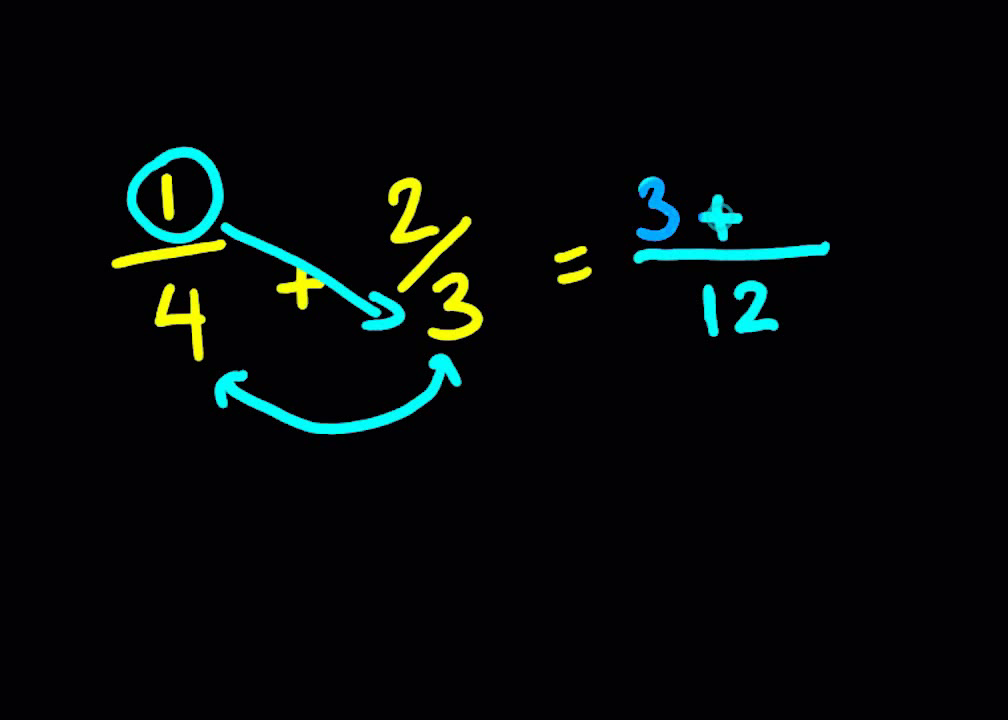 1/4 + 2/3 = 3 +/12